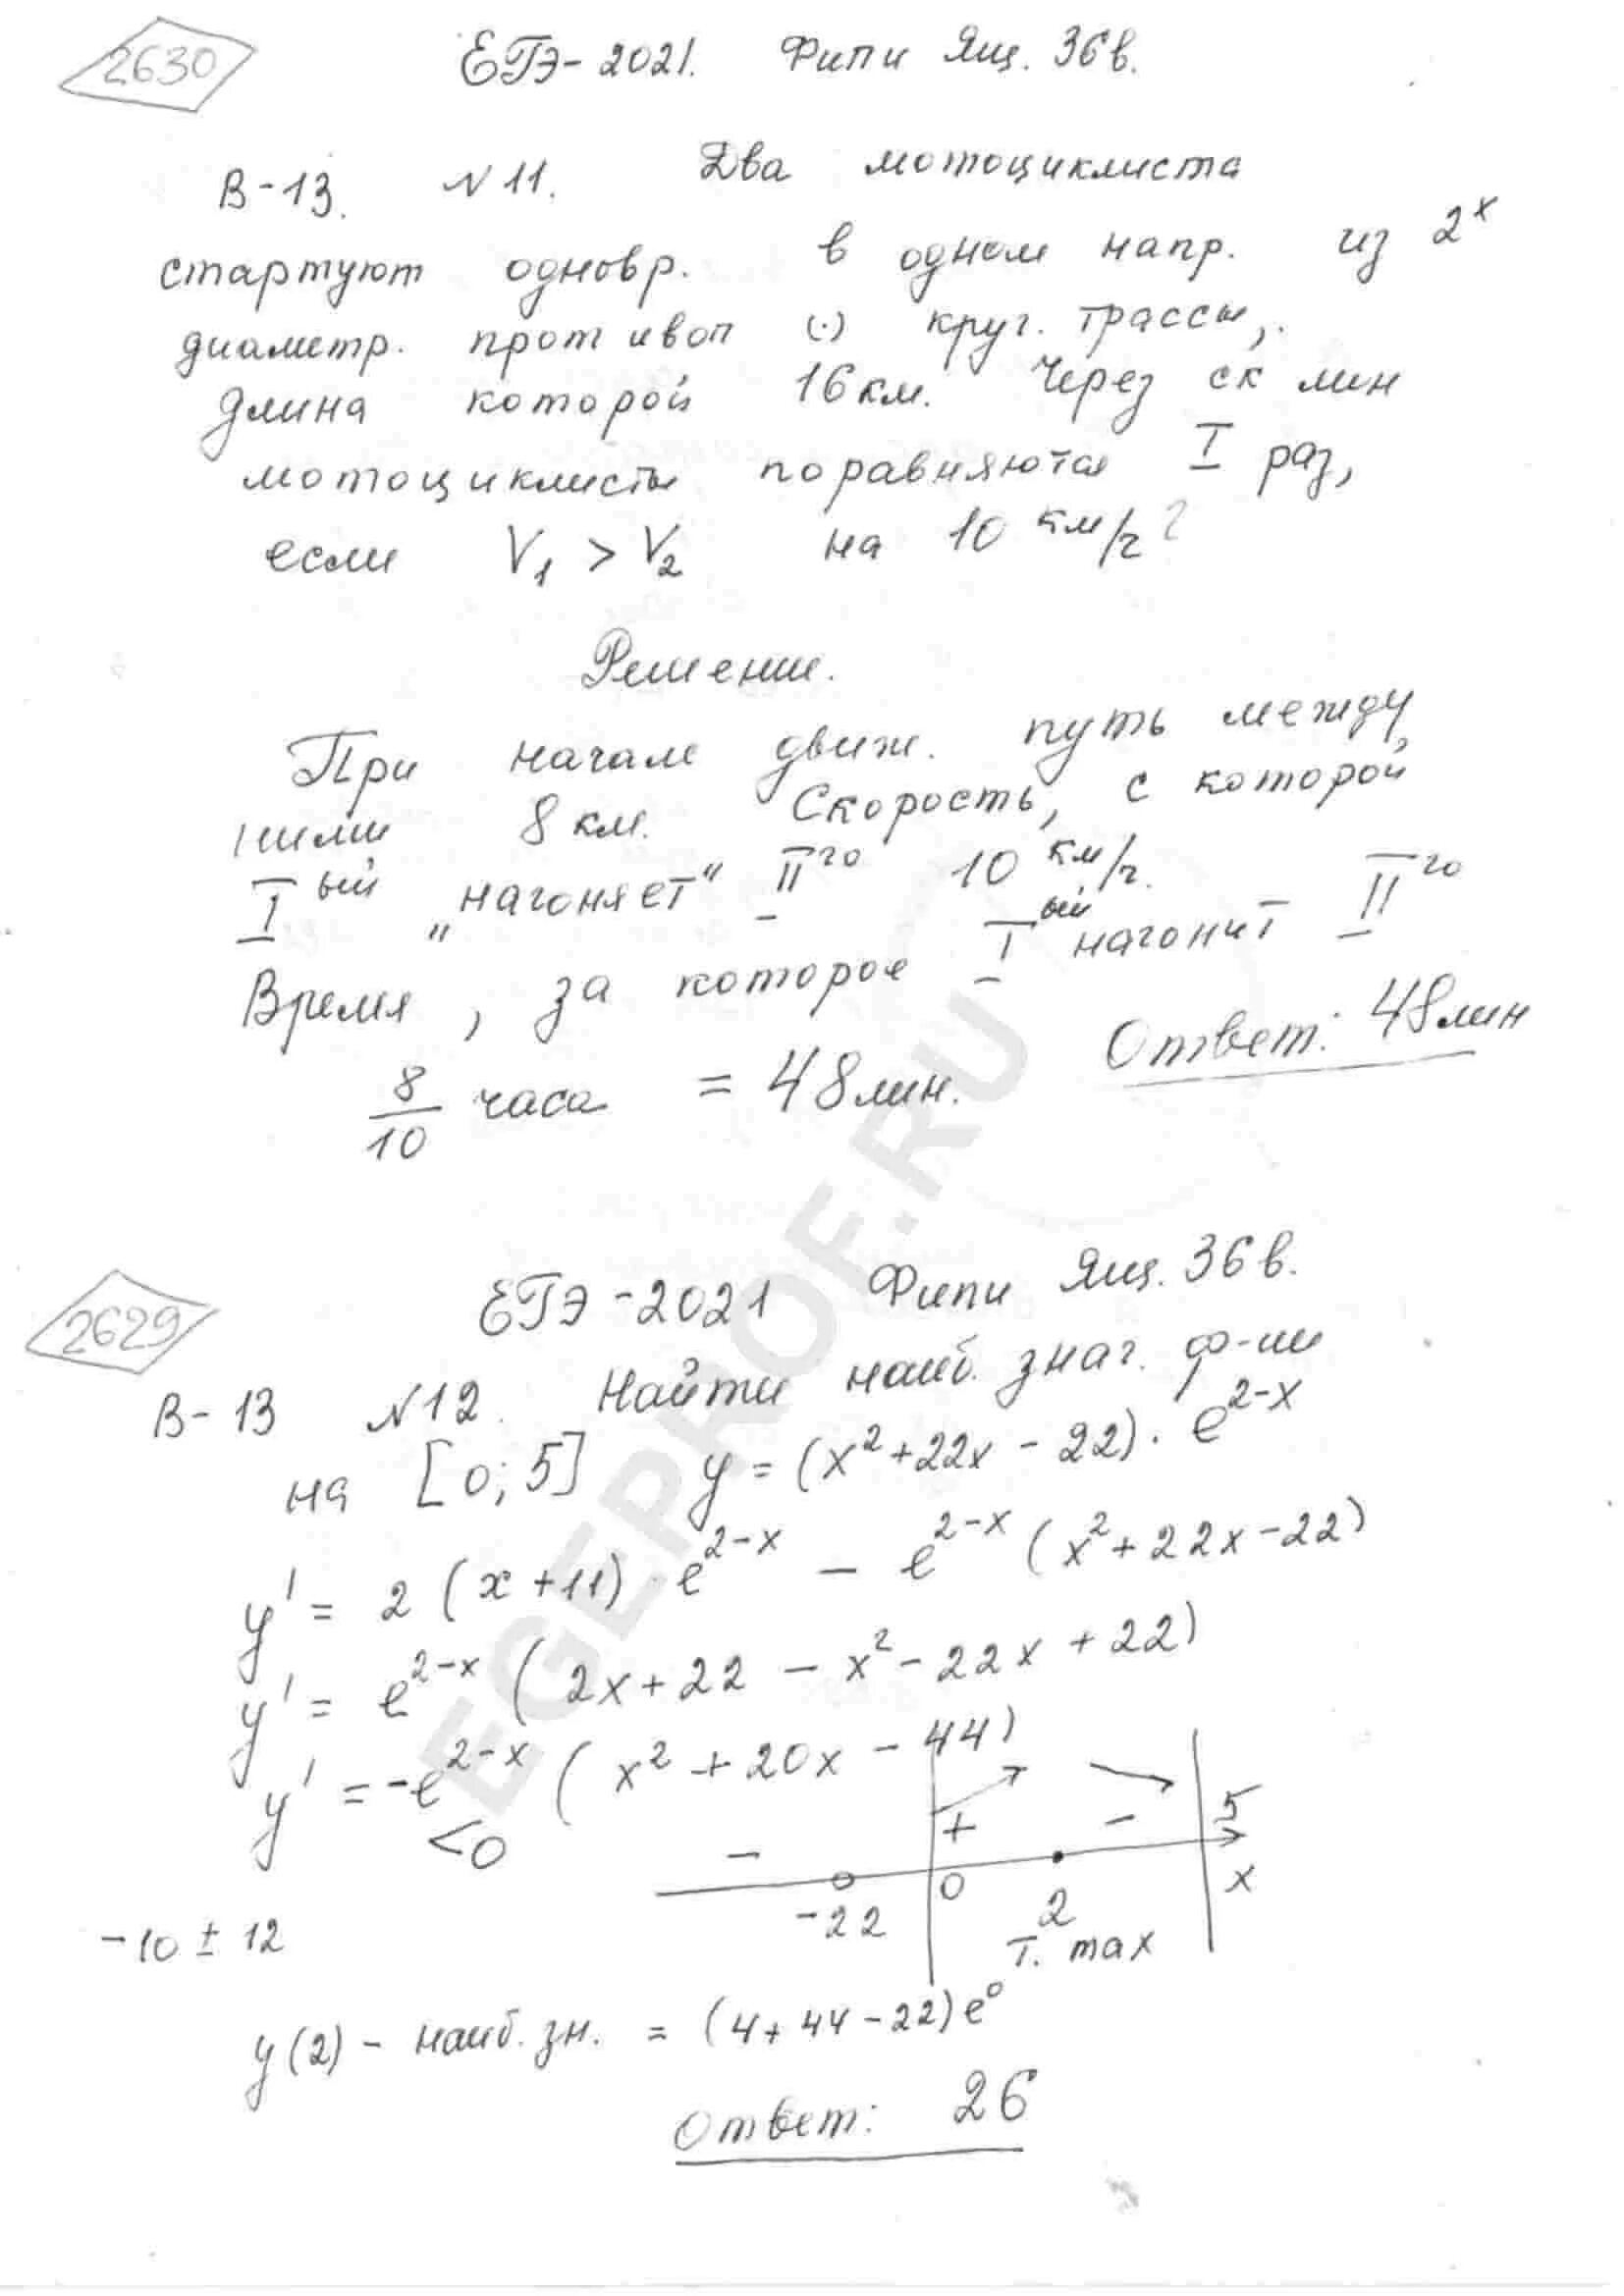 2630
ЕГЭ-2021. Фипи Ящ. 36в.
В-13. №11. Два мотоциклиста
стартуют одновр. в одном напр. из 2х
диаметр. противоп (·) круг. трассы,
длина которой 16км. Через ск мин
мотоциклисты поравняются I раз,
если V₁ > V₂ на 10 км/ч?
Решение.
При начале движ. путь между
ними 8 км. Скорость, с которой
I ый „нагоняет" II го 10 км/ч.
Время, за которое I ый нагонит II го
8/10 часа = 48мин. Ответ: 48мин
2629
ЕГЭ-2021 Фипи Ящ. 36в.
В-13 №12. Найти наиб. знач. ф-ии
на [0; 5] y = (x²+22x-22)·e^(2-x)
y' = 2(x+11)·e^(2-x) - e^(2-x)(x²+22x-22)
y' = e^(2-x)(2x+22 - x² - 22x + 22)
y' = -e^(2-x)(x² + 20x - 44)
<0
- + - 5
-22 0 2 x
-10 ± 12 т. max
y(2) - наиб. зн. = (4+44-22)e⁰
Ответ: 26
EGEPROF.RU